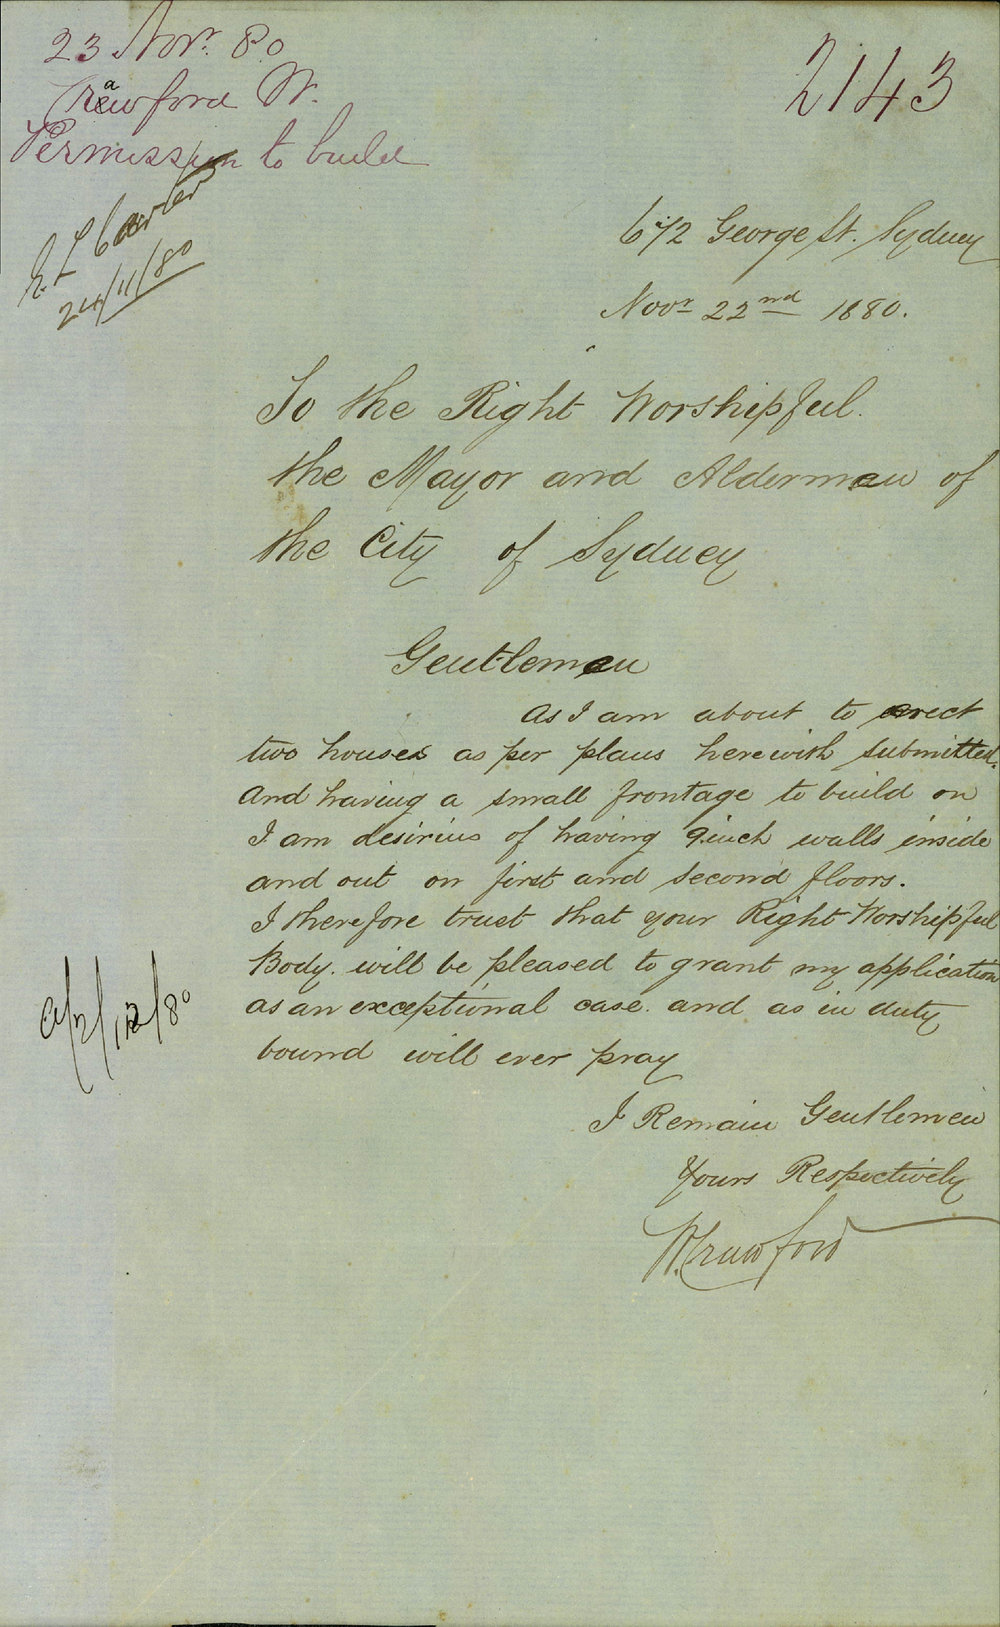 23 Novr. 80
Crawford W.
Permission to build
24/11/80
2143
672 George St. Sydney
Novr 22nd 1880.
To the Right Worshipful.
the Mayor and Aldermen of
the City of Sydney
Gentlemen
As I am about to erect
two houses as per plans herewith submitted.
And having a small frontage to build on
I am desirius of having 9 inch walls inside
and out on first and second floors.
I therefore trust that your Right Worshipful
Body. will be pleased to grant my application
as an exceptional case. and as in duty
bound will ever pray
I Remain Gentlemen
Yours Respectively
W. Crawford